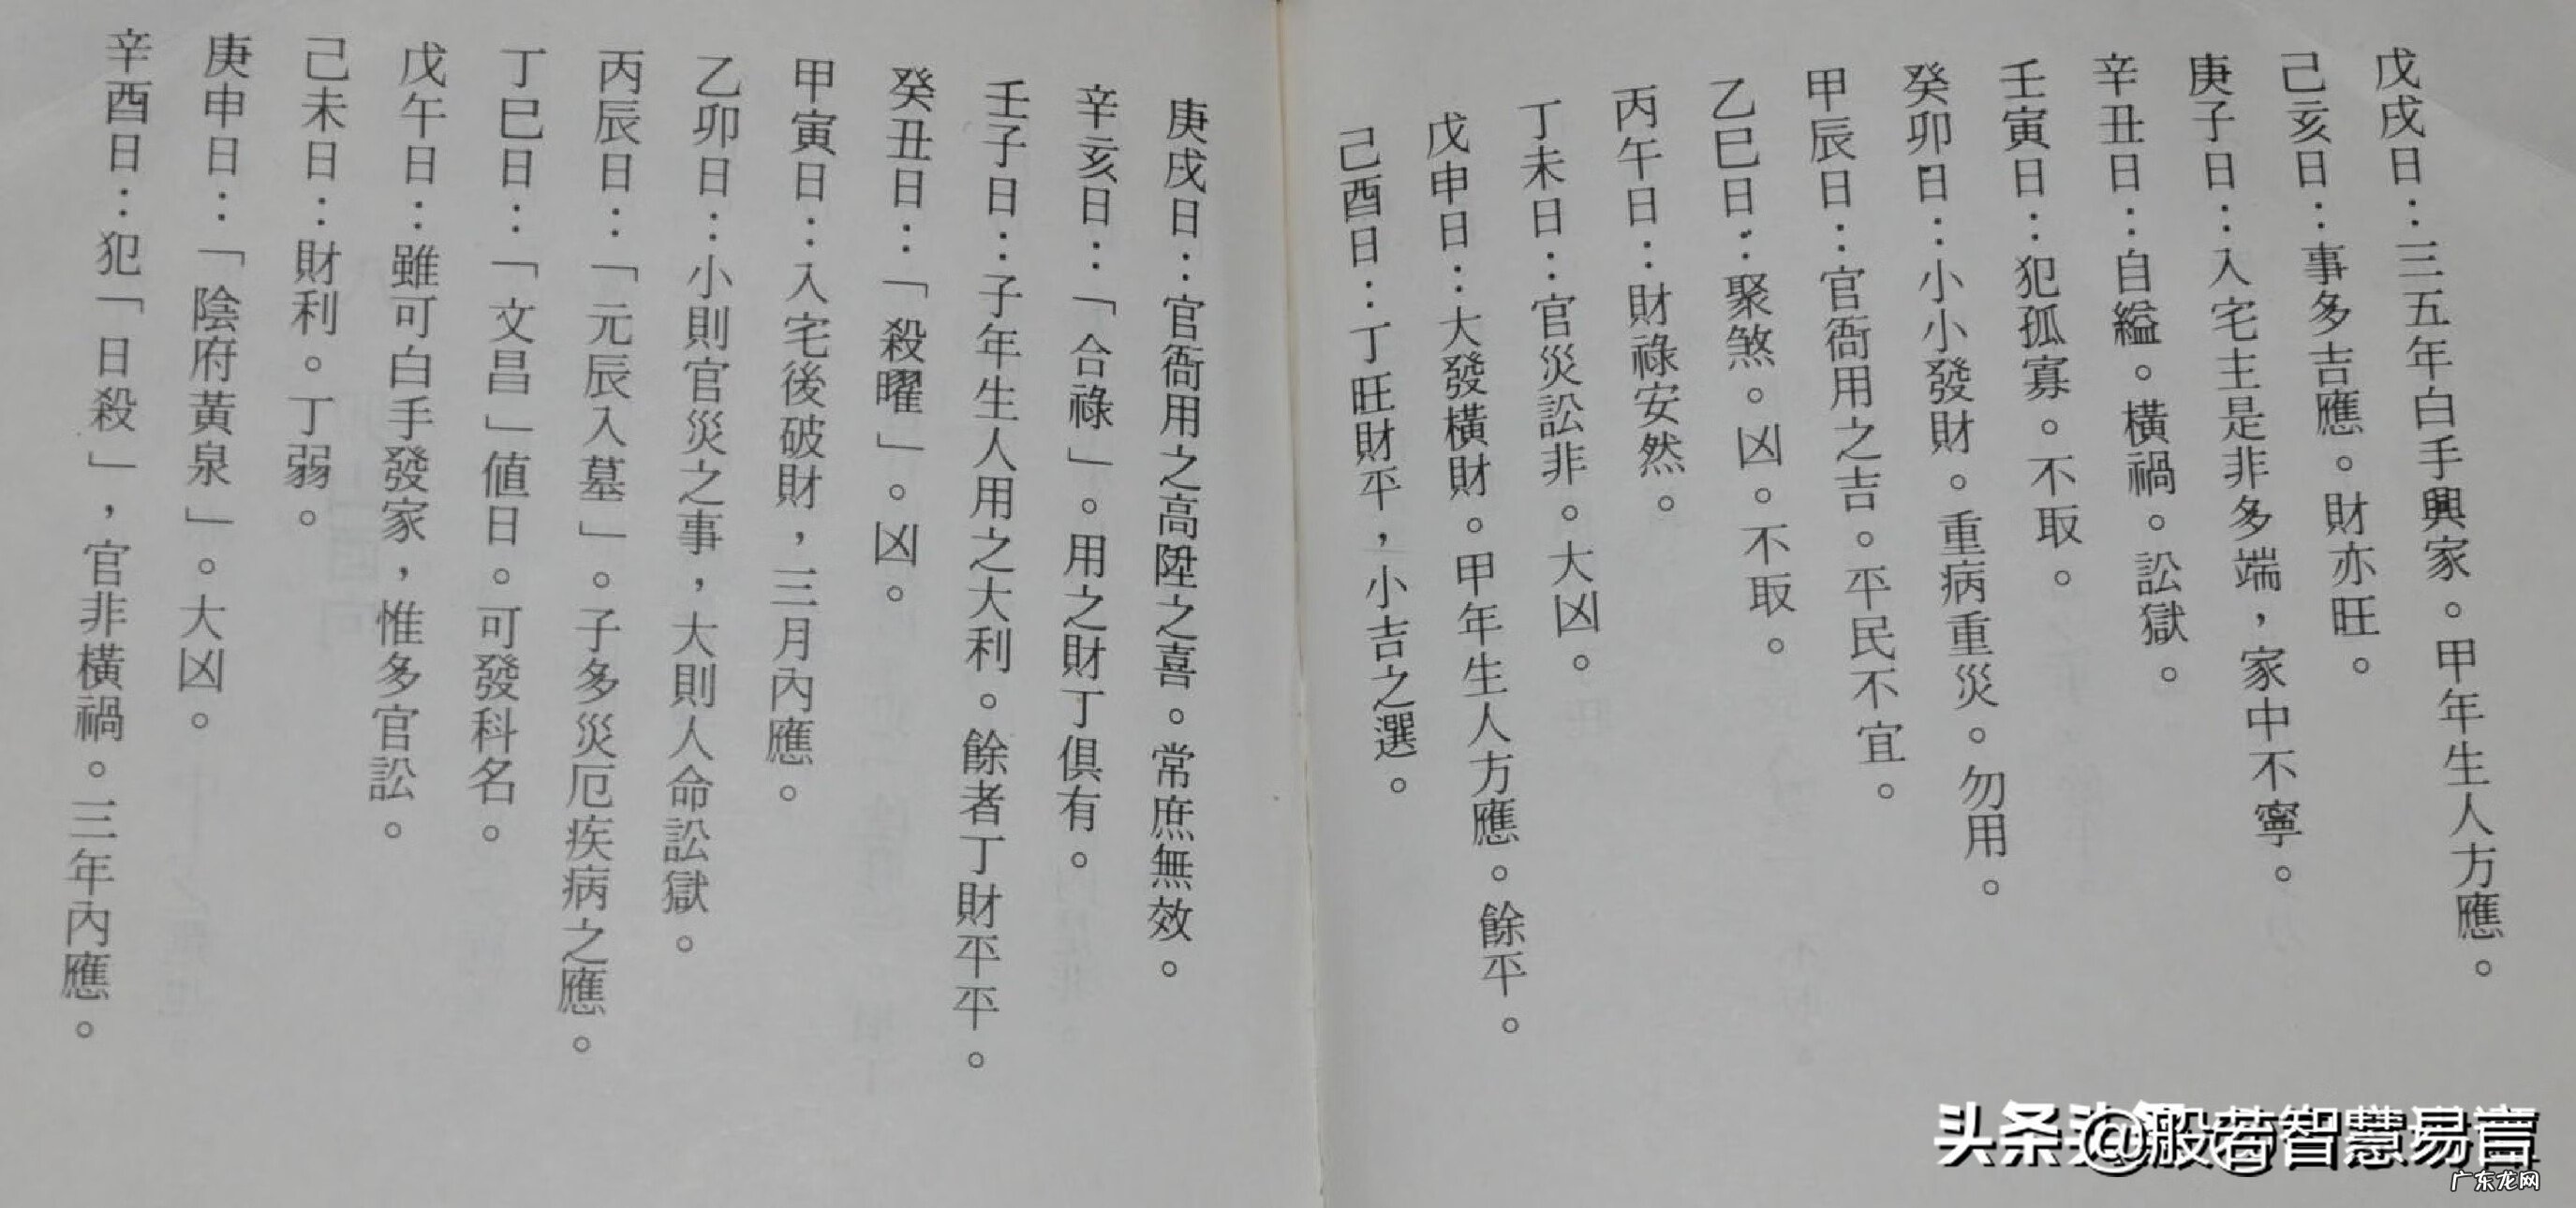 戊戌日：三五年白手興家。甲年生人方應。
己亥日：事多吉應。財亦旺。
庚子日：入宅主是非多端，家中不寧。
辛丑日：自縊。橫禍。訟獄。
壬寅日：犯孤寡。不取。
癸卯日：小小發財。重病重災。勿用。
甲辰日：官衙用之吉。平民不宜。
乙巳日：聚煞。凶。不取。
丙午日：財祿安然。
丁未日：官災訟非。大凶。
戊申日：大發橫財。甲年生人方應。餘平。
己酉日：丁旺財平，小吉之選。
庚戌日：官衙用之高陞之喜。常庶無效。
辛亥日：「合祿」。用之財丁俱有。
壬子日：子年生人用之大利。餘者丁財平平。
癸丑日：「殺曜」。凶。
甲寅日：入宅後破財，三月內應。
乙卯日：小則官災之事，大則人命訟獄。
丙辰日：「元辰入墓」。子多災厄疾病之應。
丁巳日：「文昌」值日。可發科名。
戊午日：雖可白手發家，惟多官訟。
己未日：財利。丁弱。
庚申日：「陰府黃泉」。大凶。
辛酉日：犯「日殺」，官非橫禍。三年內應。
头条 @般若智慧易言
广东龙网